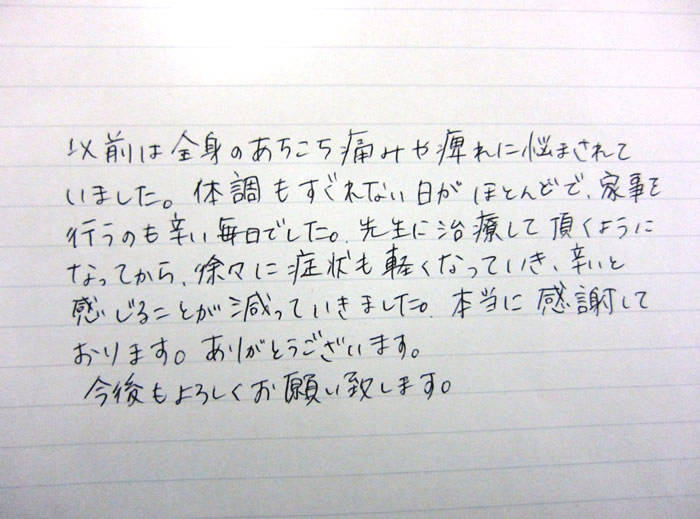 以前は全身のあちこち痛みや痺れに悩まされて
いました。体調もすぐれない日がほとんどで、家事を
行うのも辛い毎日でした。先生に治療して頂くように
なってから、徐々に症状も軽くなっていき、辛いと
感じることが減っていきました。本当に感謝して
おります。ありがとうございます。
今後もよろしくお願い致します。